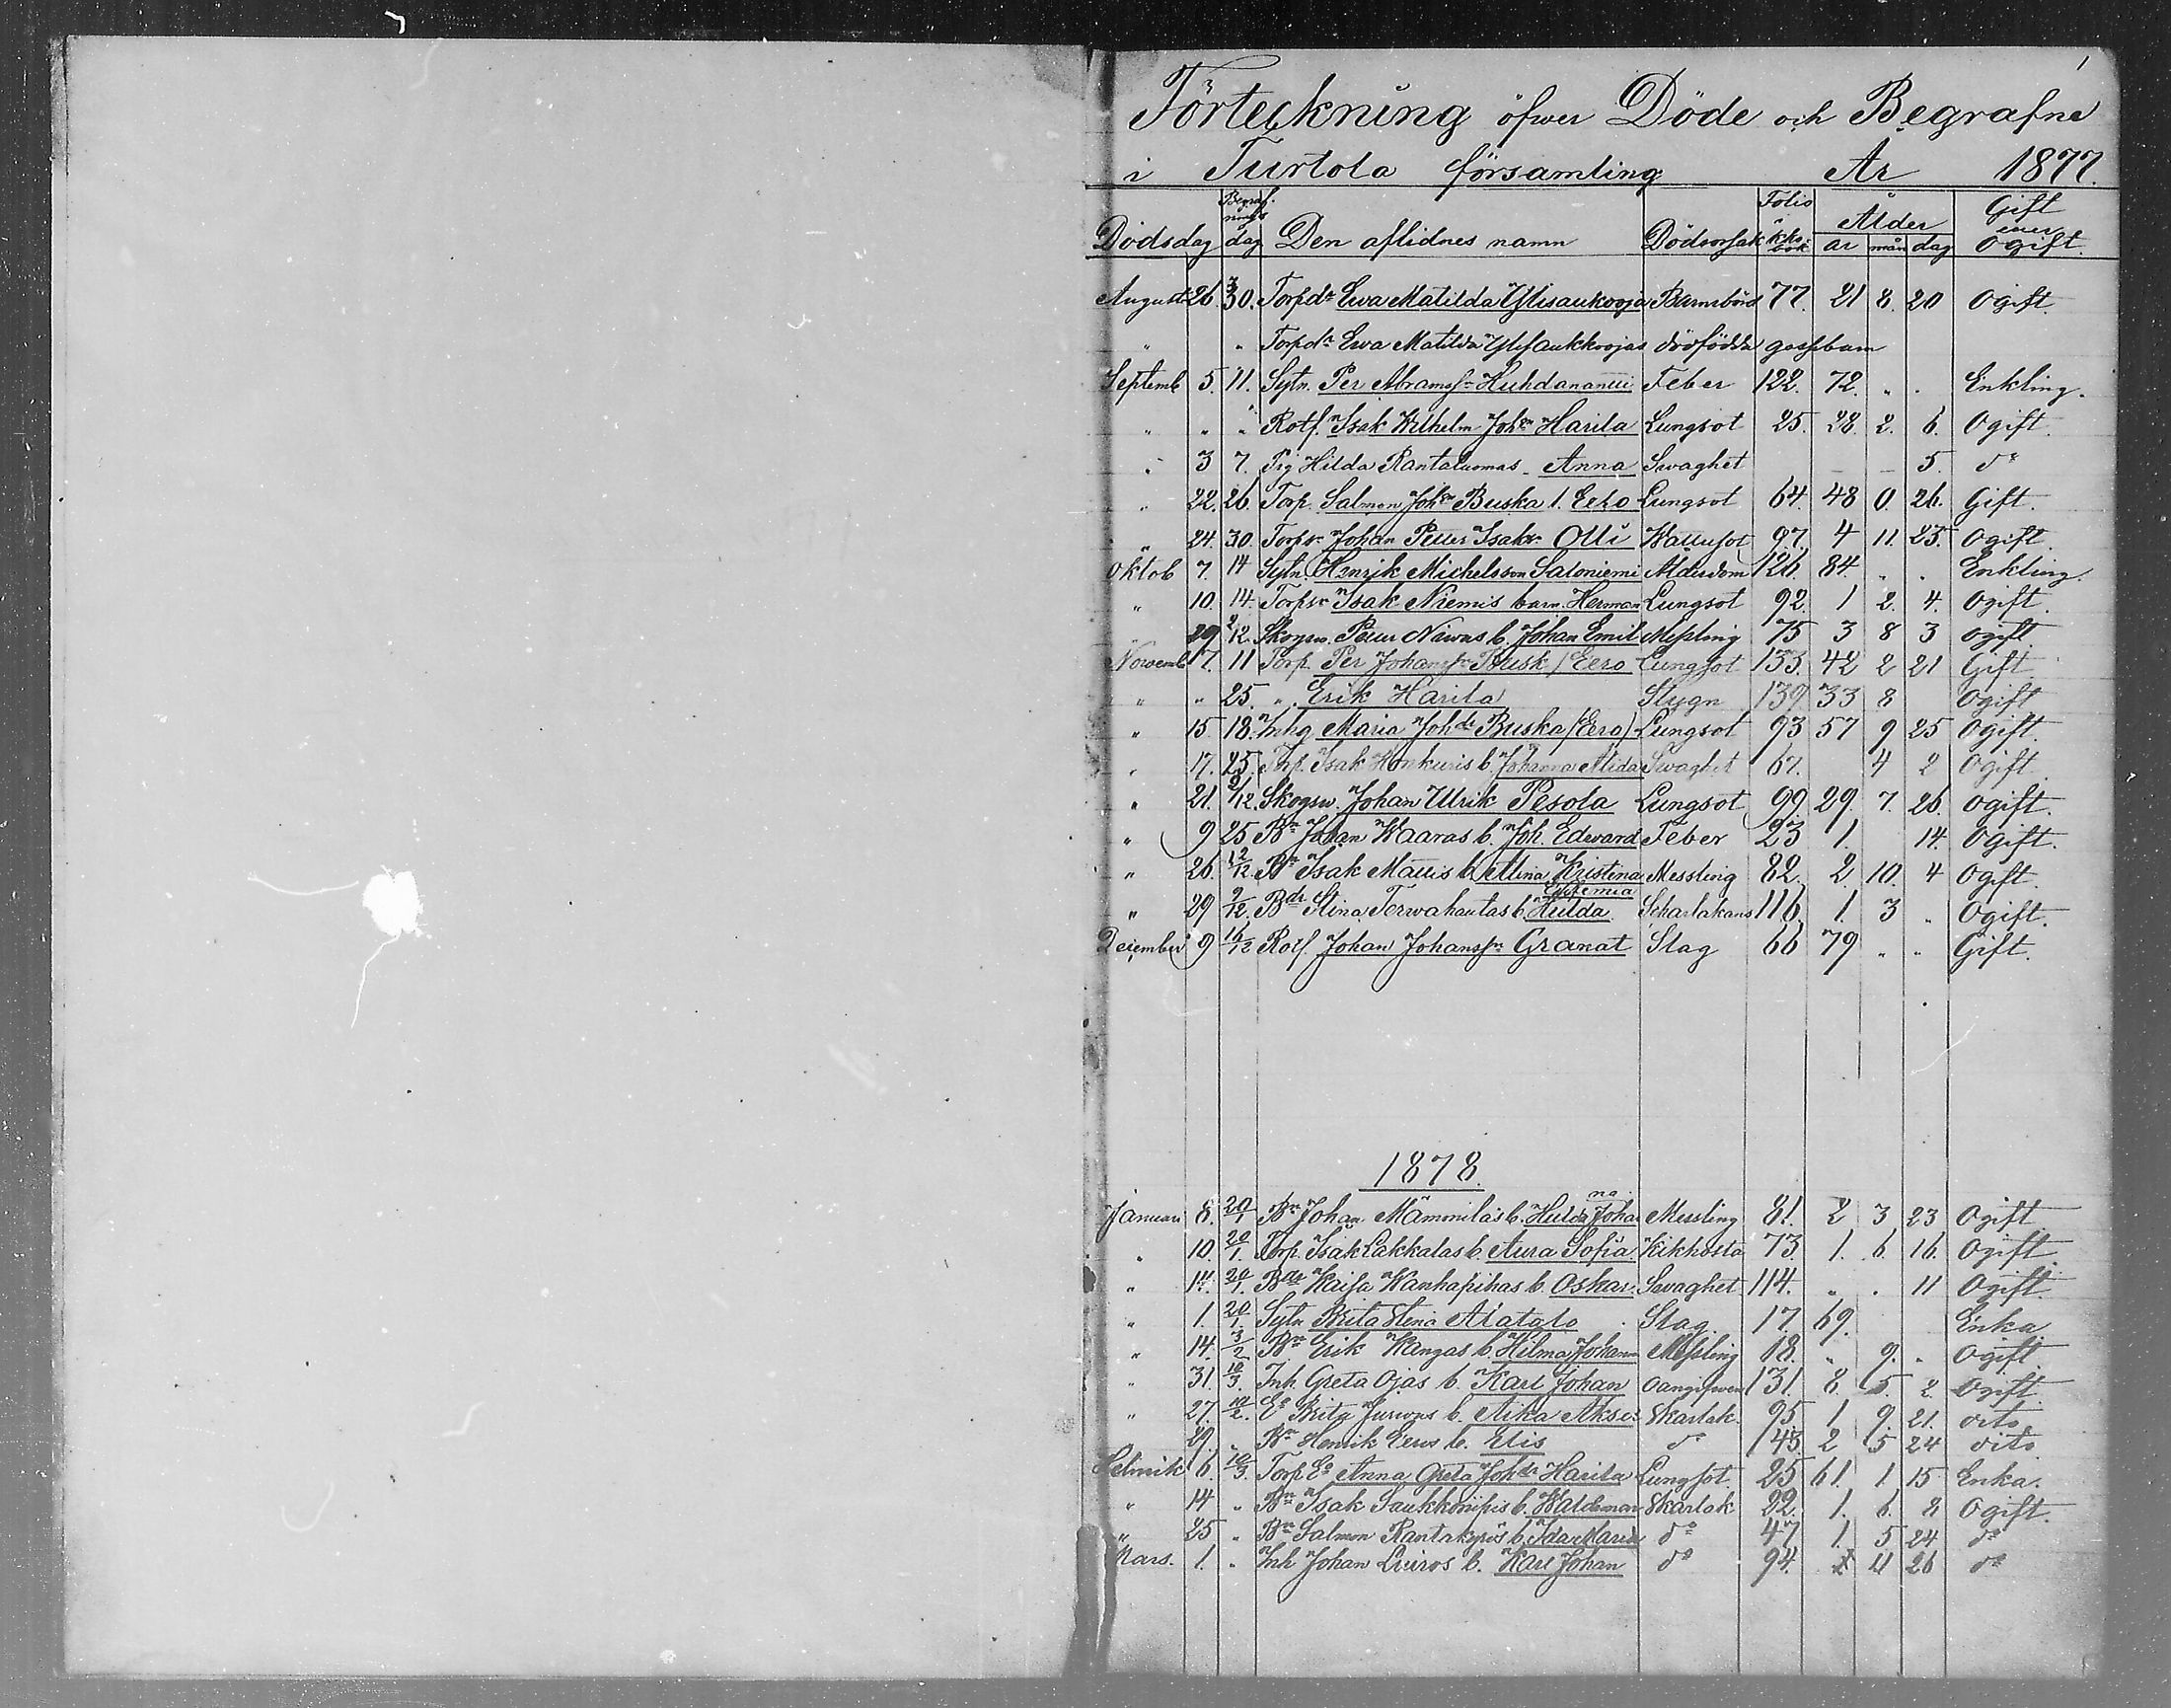 1
Förteckning öfwer Döde och Begrafne
i Turtola församling År 1877.
Dödsdag Begrafnings dag Den aflidnes namn Dödsorsak Folio i kks. bok Ålder år mån dag Gift eller Ogift.
August 26. 30. Torpdr Ewa Matilda Ylisaukooja Barnsbörd 77. 21 8. 20 Ogift.
" " Torpdr Ewa Matilda Ylisaukkoojas dödfödda gossebarn
Septemb 5. 11. Sytn. Per Abramss. Huhdanantti Feber 122. 72. " . Enkling.
" " " Rotf. Isak Wilhelm Johsn Harila Lungsot 25. 28. 2. 6. Ogift.
" 3 7. Pig Hilda Rantaluomas Anna Swaghet – – 5. do
" 22. 26. Torp. Salmon Johsn Buska l. Eero Lungsot 64. 48 0. 26. Gift.
" 24. 30. Torps. Johan Petter Isaks. Olli Wattusot 97. 4 11. 25. Ogift.
Oktob 7. 14 Sytn. Henrik Michelsson Saloniemi Ålderdom 126. 84. " . Enkling.
" 10. 14. Torps. Isak Niemis barn Herman Lungsot 92. 1 2. 4. Ogift.
" 29 2/12. Skogsw. Petter Niwas b. Johan Emil Messling 75 3 8 3 ogift
Novemb 7. 11 Torp. Per Johanss. Busk / Eero Lungsot 133. 42 2 21 Gift
" " 25. " Erik Harila Stygn 139 33 8 Ogift
" 15 18. Inhg Maria Johdr Buska (Eero) Lungsot 93 57 9 25 Ogift.
" 17. 25. Inh. Isak Honkuris b. Johanna Alida Swaghet 67. 4 2 Ogift
" 21. 2/12. Skogsw. Johan Ulrik Pesola Lungsot 99. 29. 7. 26. ogift.
" 9 25 Bn Johan Waaras b. Joh. Edward Feber 23 1. 14. Ogift.
" 26. 12/12. Bn Isak Mattis b. Mina Kristina Messling 82. 2. 10. 4 Ogift.
" 29 9/12. Bdr Stina Terwahautas b. Hulda Eufemia Scharlakans 116. 1. 3 " Ogift.
December 9 16/12 Rotf. Johan Johanssn Granat Slag 66 79 " " Gift.
1878.
Januari 8. 20/1 Bn Johan Mämmiläs b. Hulda Johanna Messling 81. 2 3 23 Ogift
" 10. 20/1. Torp. Isak Lakkalas b. Aura Sofia Kikhosta 73 1. 6. 16. Ogift.
" 14. 20/1. Bdr Kaisa Wanhapihas b. Oskar. Swaghet 114. " . 11 Ogift.
" 1. 20/1. Sytn Brita Stina Alatalo Slag 17. 69. Enka
" 14. 3/2 Bn Erik Kangas b. Hilma Johann Messling 18. " 9. " Ogift
" 31. 10/3. Inh. Greta Ojas b. Karl Johan oangifwen 131. 8. 5. 2. Ogift
" 27. 10/2. Brita b. Aika Aksel Skarlak. 95 1 9. 21. dito
29. " Bn Henrik Eeros b. Elis do 143. 2 5 24 dito
Helmik 6. 10/3. Torp. Ea Anna Greta Johdr Harila Lungsot 25 61. 1 15 Enka.
" 14 " Bn Isak b. Waldemar Skarlak 22. 1. 6. 8 Ogift.
" 25 " Bn Salmon b. Ida Maria do 47 1. 5 24 do
Mars. 1. " Inh Johan b. Karl Johan do 94. 11 26 do